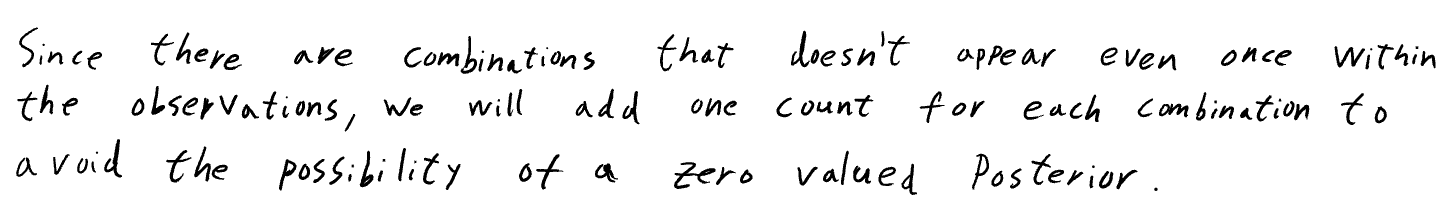 Since there are combinations that doesn't appear even once within
the observations, we will add one count for each combination to
avoid the possibility of a zero valued Posterior.